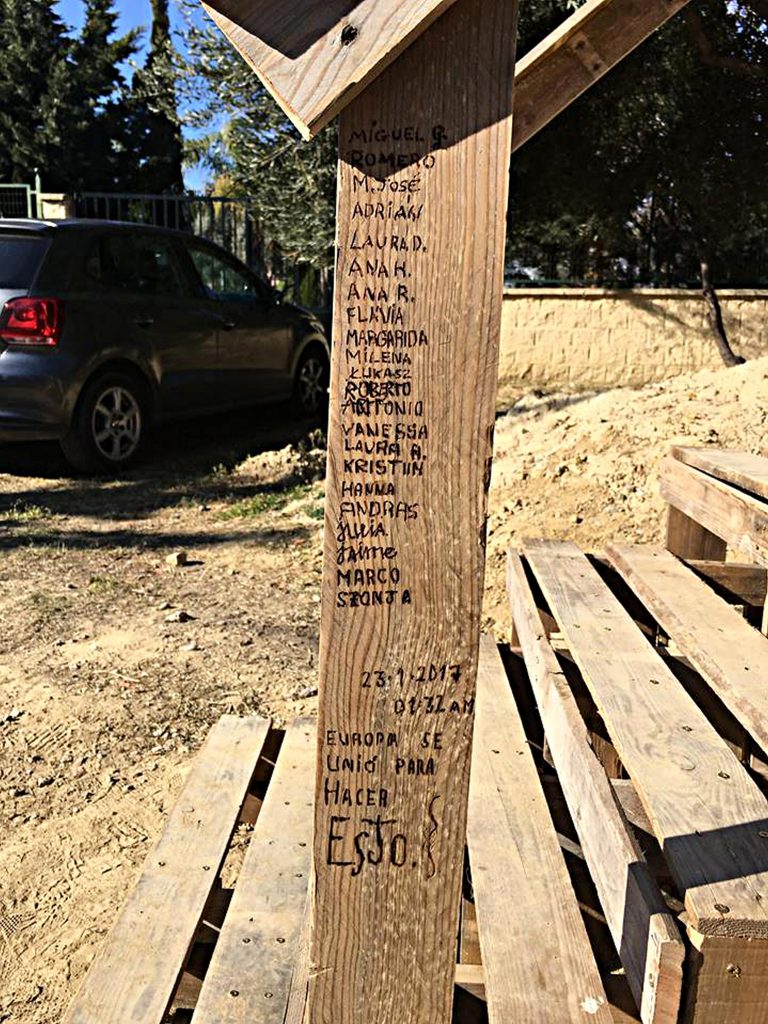 MIGUEL G.
ROMERO
M. JOSÉ
ADRIÁN
LAURA D.
ANA H.
ANA R.
FLAVIA
MARGARIDA
MILENA
ŁUKASZ
ROBERTO
ANTONIO
VANESSA
LAURA A.
KRISTIIN
HANNA
ANDRAS
Julia
Jaime
MARCO
SZONJA
23·1·2017
01:32 AM
EUROPA SE
UNIÓ PARA
HACER
ESTO.